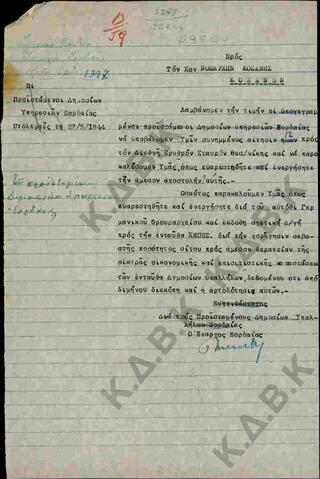 Δ/39
5293
29800
1397
Πρός
Τόν Κον ΝΟΜΑΡΧΗΝ ΚΟΖΑΝΗΣ
Κ Ο Ζ Α Ν Η Ν
Οἱ
Προϊστάμενοι Δημοσίων
Ὑπηρεσιῶν Ἐορδαίας
Πτολεμαῒς τῇ 27/9/1944
Λαμβάνομεν τήν τιμήν οἱ ὑπογεγραμ
μένοι προϊστάμενοι Δημοσίων ὑπηρεσιῶν Ἐορδαίας
νά ὑποβάλωμεν Ὑμῖν συνημμένως αἴτησιν ἡμῶν πρός
τόν Διεθνῆ Ἐρυθρόν Σταυρόν Θεσ/νίκης καί νά παρα-
καλέσωμεν Ὑμᾶς, ὅπως εὐαρεστηθῆτε καί ἐνεργήσητε
διά τήν ἄμεσον ἀποστολήν αὐτῆς.-
Ὡσαύτως παρακαλοῦμεν Ὑμᾶς, ὅπως
εὐαρεστηθῆτε καί ἐνεργήσητε διά τοῦ αὐτόθι Γερ
μανικοῦ Φρουραρχείου καί ἐκδοθῇ σχετική Δ/γή
πρός τήν ἐνταῦθα ΚΕΠΕΣ. διά τήν χορήγησιν σεβα-
στῆς ποσότητος σίτου πρός ἄμεσον θεραπείαν τῆς
οἰκτρᾶς οἰκονομικῆς καί ἐπισιτιστικῆς καταστάσεως
τῶν ἐνταῦθα Δημοσίων ὑπαλλήλων, δεδομένου ὅτι ἀπό
διμήνου διεκόπη καί ἡ ἀρτοδότησις αὐτῶν.-
Εὐπειθέστατος
Διά τούς Προϊσταμένους Δημοσίων Ὑπαλ-
λήλων Ἐορδαίας
Ὁ Ἔπαρχος Ἐορδαίας
Κ.Δ.Β.Κ
Κ.Δ.Β.Κ
Κ.Δ.Β.Κ